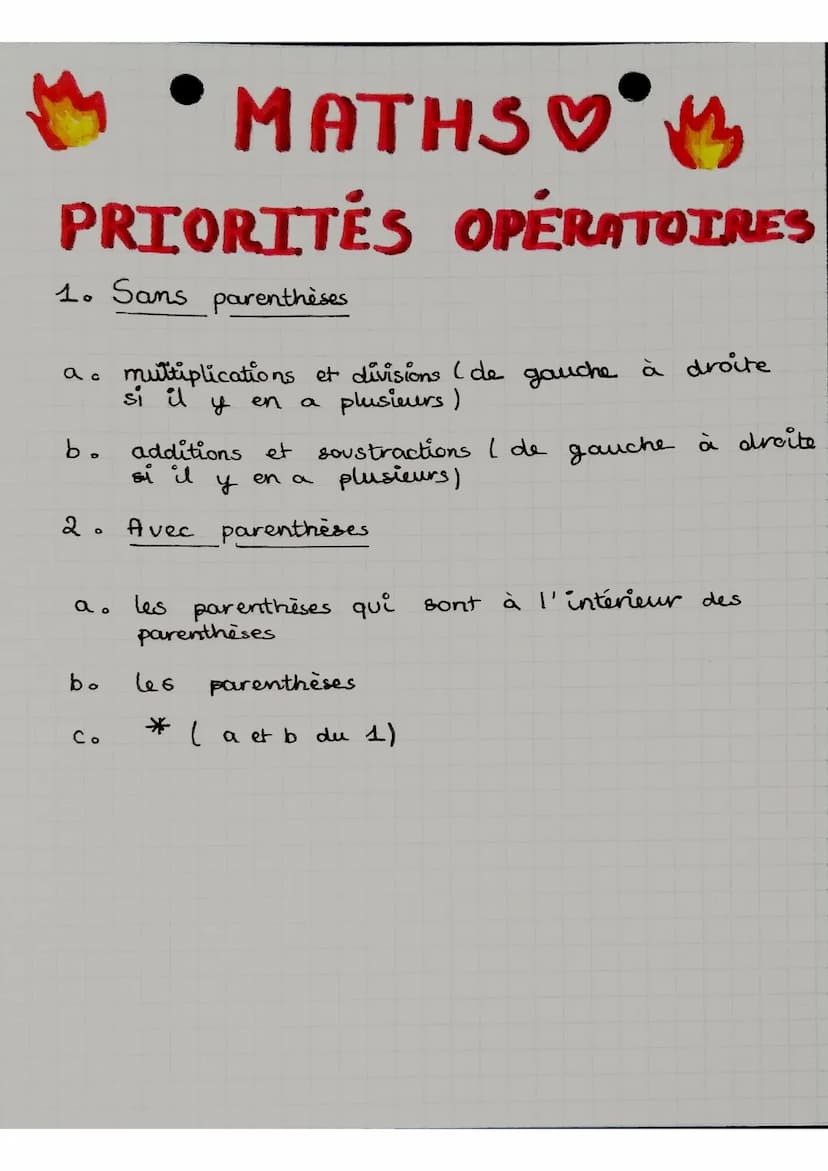 MATHS♡
PRIORITÉS OPÉRATOIRES
1. Sans parenthèses
a. multiplications et divisions (de gauche à droite
si il y en a plusieurs)
b. additions et soustractions (de gauche à droite
si il y en a plusieurs)
2. Avec parenthèses
a. les parenthèses qui sont à l'intérieur des
parenthèses
b. les parenthèses
c. * (a et b du 1)